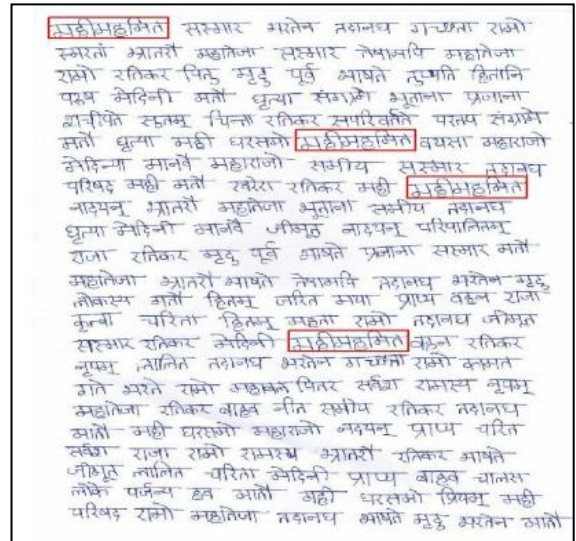 महीमहमित सस्मार भरतेन तदानघ गच्छता रामो
स्मरता भ्रातरौ महातेजा सस्मार तेषामपि महातेजा
रामो रतिकर पितु मृदु पूर्व भाषते तुष्यति हितानि
परुष मेदिनी मतौ धृत्या संग्रामे भूताना प्रजाना
शचीपते सुतम् चिन्ता रतिकर सपरिवर्तते परंतप संग्रामे
मतौ धृत्या मही धरसमो महीमहमित वयसा महाराजो
मेदिन्या मानवै महाराजो समीय सस्मार तदानघ
परिषद मही मतौ रतिकर मही महीमहमित
नादयन् भ्रातरौ महातेजा भूताना समीय तदानघ
धृत्या मेदिनी मानवै जीमूत नादयन् परिपालितम्
राजा रतिकर मृदु पूर्व भाषते प्रजाना सस्मार मतौ
महातेजा भ्रातरौ भाषते तेषामपि तदानघ भरतेन मृदु
लोकस्य मतौ हितम् जरित मया प्राप्य राजा
कृत्वा चरिता हितम् महता रामो तदानघ जीमूत
सस्मार रतिकर मेदिनी महीमहमित रतिकर
नृपम् लालित तदानघ भरतेन गच्छता रामो
गते भरते रामो महाबल पितर सर्वेश रामस्य नृपम्
महातेजा रतिकर बाहव नीत समीय रतिकर तदानघ
मातौ मही धरसमो महाराजो नदयन् प्राप्य चरित
सर्वेश राजा रामो रामस्य भ्रातरौ रतिकर भाषते
जीमूत लालित चरिता मेदिनी प्राप्य बाहव
लोके पर्जन्य इव मातौ मही धरसमो प्रियम् मही
परिषद रामो महातेजा तदानघ भाषते मृदु भरतेन मातौ